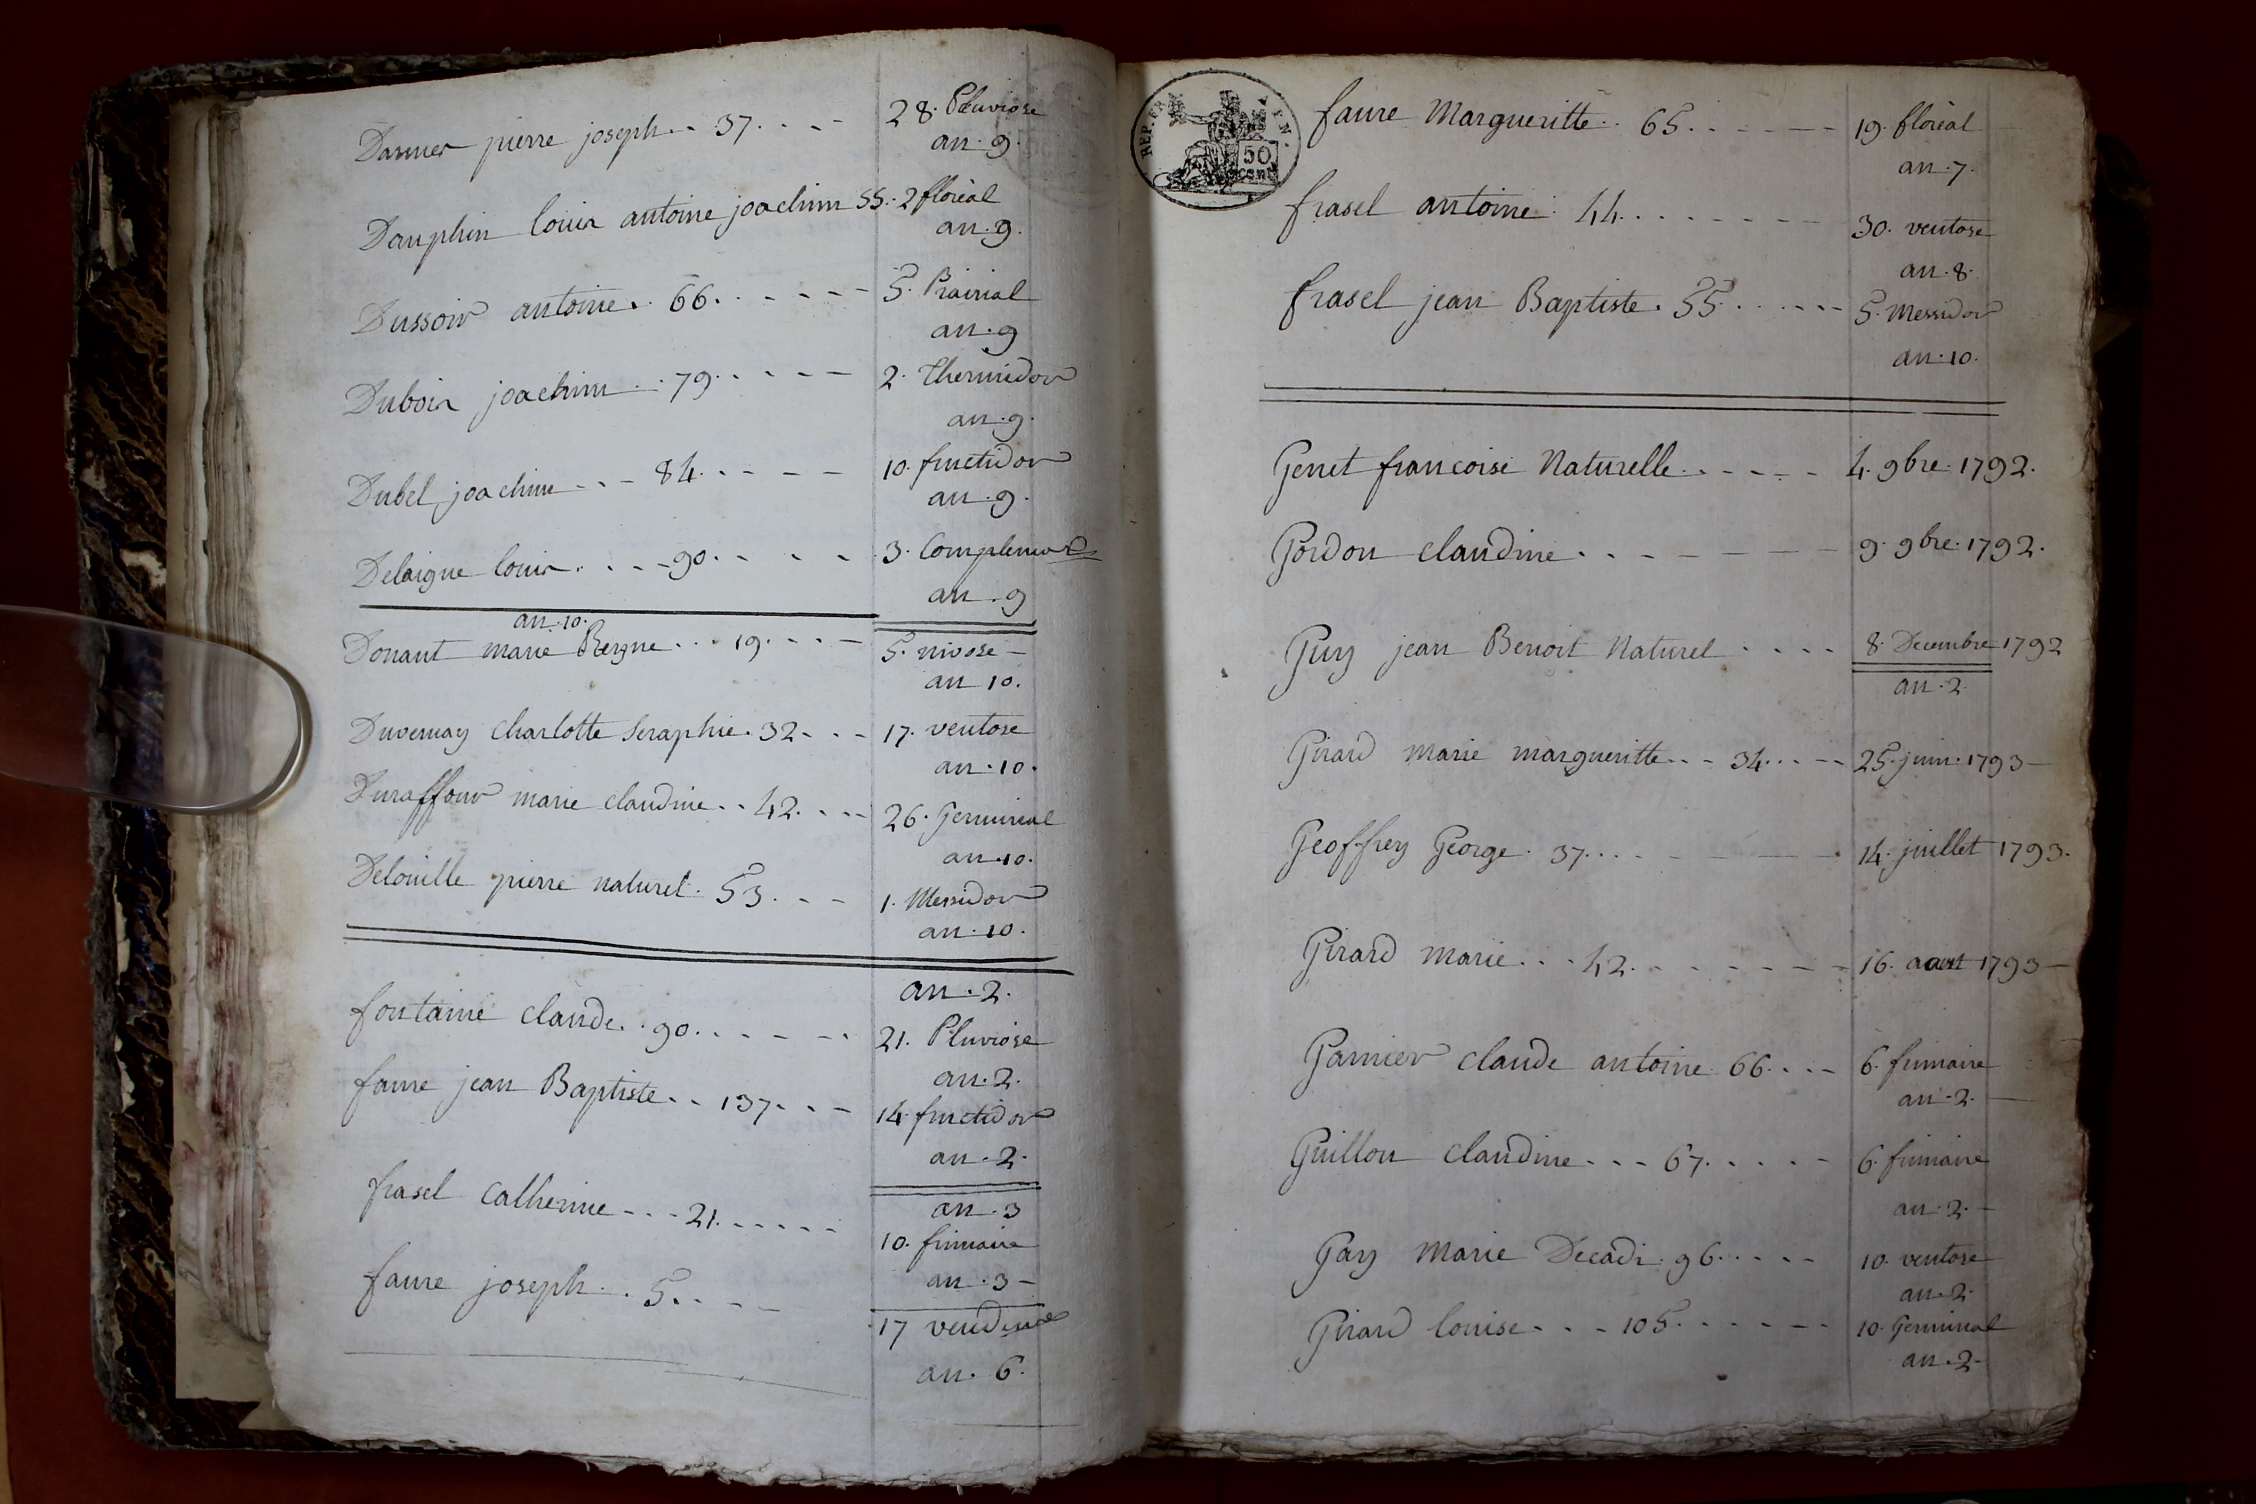 Darmer pierre joseph 37. 28. Pluviose
an. 9.
Dauphin louis antoine joachim 55. 2 floréal
an. 9.
Dussoir antoine. 66. 5. Prairial
an. 9
Dubois joachim. 79. 2. Thermidor
an. 9.
Dubel joachim 84. 10. fructidor
an. 9.
Delaigue louis. 90. 3. Complem
an. 9
an. 10.
Donant marie Reyne 19. 5. nivose
an 10.
Duvernay Charlotte Seraphie. 32. 17. ventose
an. 10.
Duraffour marie claudine 42. 26. Germinal
an. 10.
Delouille pierre naturel. 53. 1. Messidor
an. 10.
an. 2.
fontaine claude. 90. 21. Pluviose
an. 2.
faure jean Baptiste 137. 14. fructidor
an. 2.
an. 3
frasel Catherine 21. 10. frimaire
an. 3
faure joseph. 5. 17 vendem
an. 6.
REP. FRA
50
cen
faure Margueritte. 65. 19. floréal
an. 7.
frasel antoine. 44. 30. ventose
an. 8.
frasel jean Baptiste. 55. 5. Messidor
an. 10.
Genet francoise Naturelle. 4. 9bre. 1792.
Gordon claudine. 9. 9bre. 1792.
Guy jean Benoit Naturel 8. Decembre 1792
an. 2.
Girard Marie margueritte 34. 25. juin. 1793
Geoffrey George. 37. 14. juillet 1793.
Girard Marie 42. 16. aout 1793
Garnier claude antoine. 66. 6. frimaire
an. 2.
Guillon claudine 67. 6. frimaire
an. 2.
Gay Marie Decadi. 96. 10. ventose
an. 2.
Girard louise 105. 10. Germinal
an. 2.